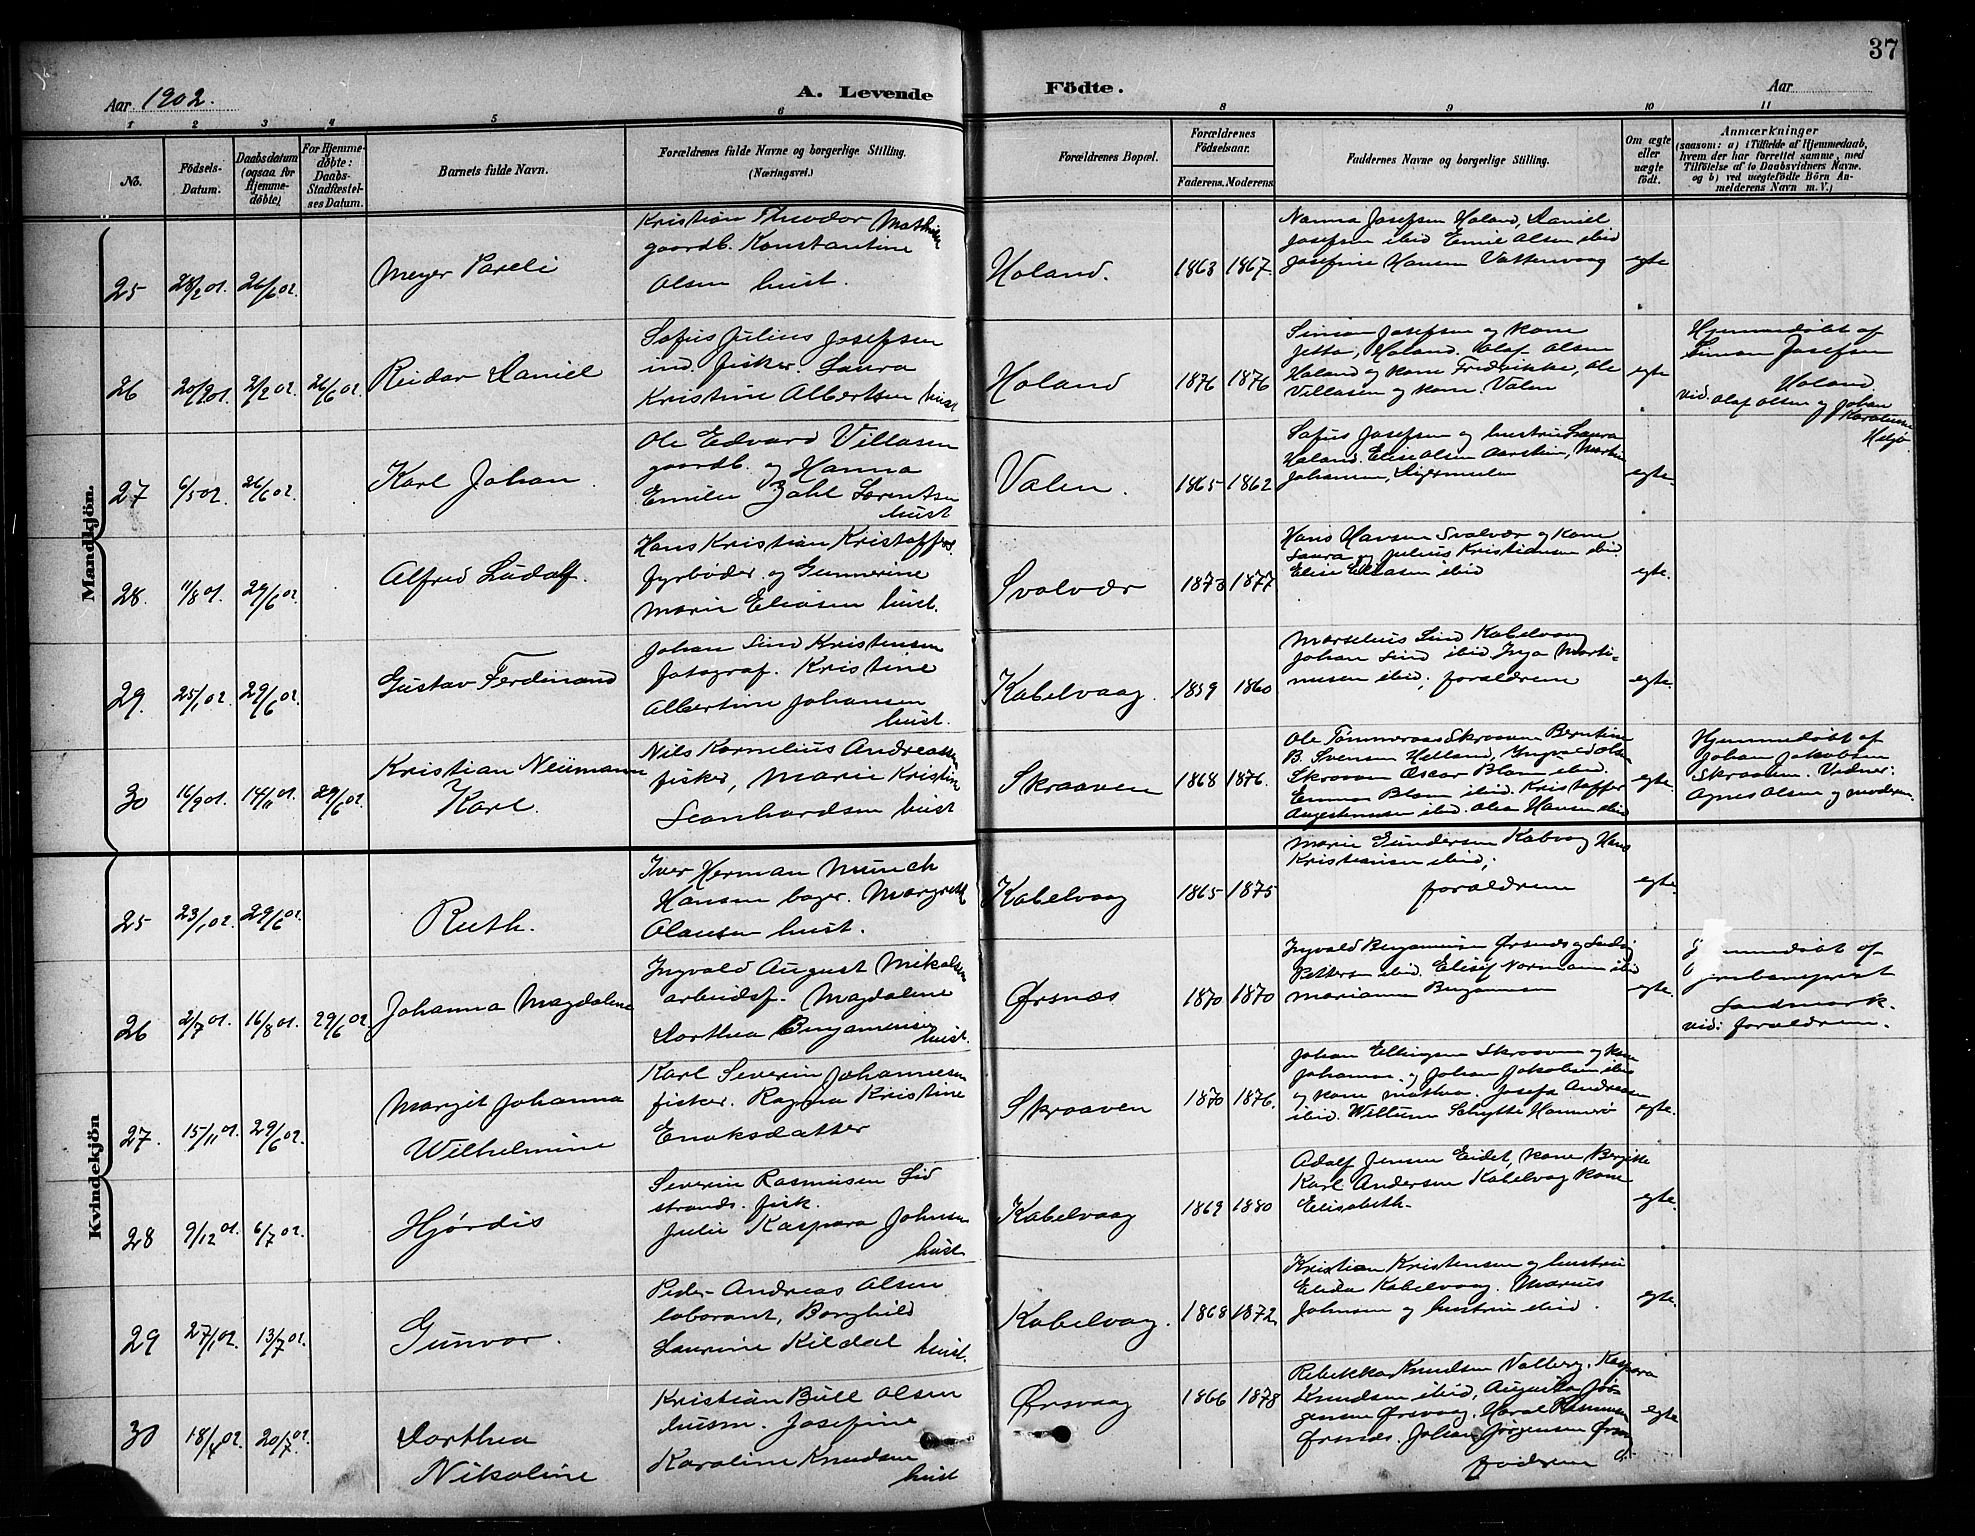 37
Aar 1902.
A. Levende
Födte.
Aar
1 2 3 4 5 6 8 9 10 11
No.
Födsels-Datum.
Daabsdatum (ogsaa for Hjemmedöbte)
For Hjemmedöbte: Daabs-Stadfæstelses Datum.
Barnets fulde Navn.
Forældrenes fulde Navne og borgerlige Stilling. (Næringsvei.)
Forældrenes Bopæl.
Forældrenes Födselsaar.
Faderens. Moderens.
Faddernes Navne og borgerlige Stilling.
Om ægte eller uægte født.
Anmærkninger
(saasom: a) i Tilfælde af Hjemmedaab, hvem der har forrettet samme, med Tilföielse af to Daabsvidners Navne. og b) ved uægtefödte Börn Anmelderens Navn m. V.)
Mandkjön.
25 28/2 01. 26/6 02. Meyer Pareli
Kristian Theodor Mathisen
gaardb. Konstantine
Olsen hust.
Holand. 1863 1867
Nanna Josefsen Holand, Daniel
Josefsen ibid Emil Olsen ibid
Josefine Hansen Vattervaag
egte
26 20/9 01. 2/2 02. 26/6 02. Reidar Daniel
Sofus Julius Josefsen
ind. fisker. Laura
Kristine Albertsen hust
Holand 1876 1876
Simon Josefsen og kone
Jetta, Holand. Olaf Olsen
Holand og kone Fredrikke, Ole
Villasen og kone. Valen
egte
Hjemmedöbt af
Simon Josefsen
Holand.
vid. Olaf Olsen og Johan
27 6/5 02. 26/6 02. Karl Johan.
Ole Edvard Villasen
gaardb. og Hanna
Emilie Zahl Lorentsen
hust
Valen. 1865 1862
Sofus Josefsen og hustru Laura
Holand. Elise Olsen Aarstein,
Johansen, Digermulen
egte.
28. 11/8 01. 29/6 02. Alfred Ludolf.
Hans Kristian Kristoffers.
fyrböder. og Gunnerine
Marie Eliasen hust.
Svolvær 1873 1877
Hans Hansen Svolvær og Kone
Laura og Julius Kristiansen ibid
Elise Eliasen ibid
egte.
29. 25/1 02. 29/6 02. Gustav Ferdinand
Johan Lind Kristensen
fotograf. Kristine
Albertine Johansen
hust.
Kabelvaag. 1859 1860
Marselius Lind Kabelvaag
Johan Lind ibid Inga Marti-
nusen ibid, forældrene
egte.
30 16/9 01. 14/11 01. 29/6 02. Kristian Neumann
Karl.
Nils Kornelius Andreassen
fisker, Marie Kristine
Leonhardsen hust
Skraaven 1868 1876.
Ole Tømmeraas Skraaven Berntine
B. Svensen Helland, Ingvald Olsen
Skroven Oscar Blom ibid.
Emma Blom ibid. Kristoffer
Augustinusen ibid. Olea Hansen ibid
egte.
Hjemmedöbt af
Johan Jakobsen
Skraaven. Vidner:
Agnes Olsen og moderen.
Kvindekjön
25 23/1 02. 29/6 02. Ruth.
Iver Herman Munch
Hansen bager. Margrethe
Olausen hust.
Kabelvaag 1865 1875
Marie Gundersen Kabvaag Hans
Kristiansen ibid;
forældrene
egte.
26 2/7 01. 16/8 01. 29/6 02. Johanna Magdalene
Ingvald August Mikalsen
arbeidsf. Magdalene
Dorthea Benjaminsen
hust.
Ørsnæs 1870 1870
Ingvald Benjaminsen Ørsnæs og
Pettersen ibid. Elisif Normann ibid
Marianna Benjaminsen
egte.
Hjemmedöbt af
Landmark.
vid: forældrene.
27. 15/11 01. 29/6 02. Margit Johanna
Wilhelmine
Karl Severin Johannesen
fisker. Ragna Kristine
Enoksdatter
Skraaven 1870 1876.
Johan Ellingsen Skraaven og kone
Johanna og Johan Jakobsen ibid
og kone Mathea. Josefa Andreasen
ibid. Willum Schytte Hammerø
egte.
28 9/12 01. 6/7 02. Hjørdis
Severin Rasmusen Lid
strands. fisk.
Julie Kaspara Johnsen
hust.
Kabelvaag 1869 1880
Adolf Jensen Eidet, kone Bergitte
Karl Andersen Kabelvag kone
Elisabeth.
egte.
29 27/1 02. 13/7 02. Gunvor.
Peder Andreas Olsen
laborant, Borghild
Laurine Kildal hust.
Kabelvaag. 1868 1872
Kristian Kristensen og hustru
Elida Kabelvaag. Marius
Johnsen og hustru ibid.
egte.
30 18/4 02. 20/7 02. Dorthea
Nikoline
Kristian Bull Olsen
husm. Josefine
Karoline Knudsen
hust
Ørsvaag 1866 1878
Rebekka Knudsen Valberg. Kaspara
Knudsen ibid, Augusta Jør-
gensen Ørsvaag, Haral Rasmusen
Ørsnæs. Johan Jørgensen
egte